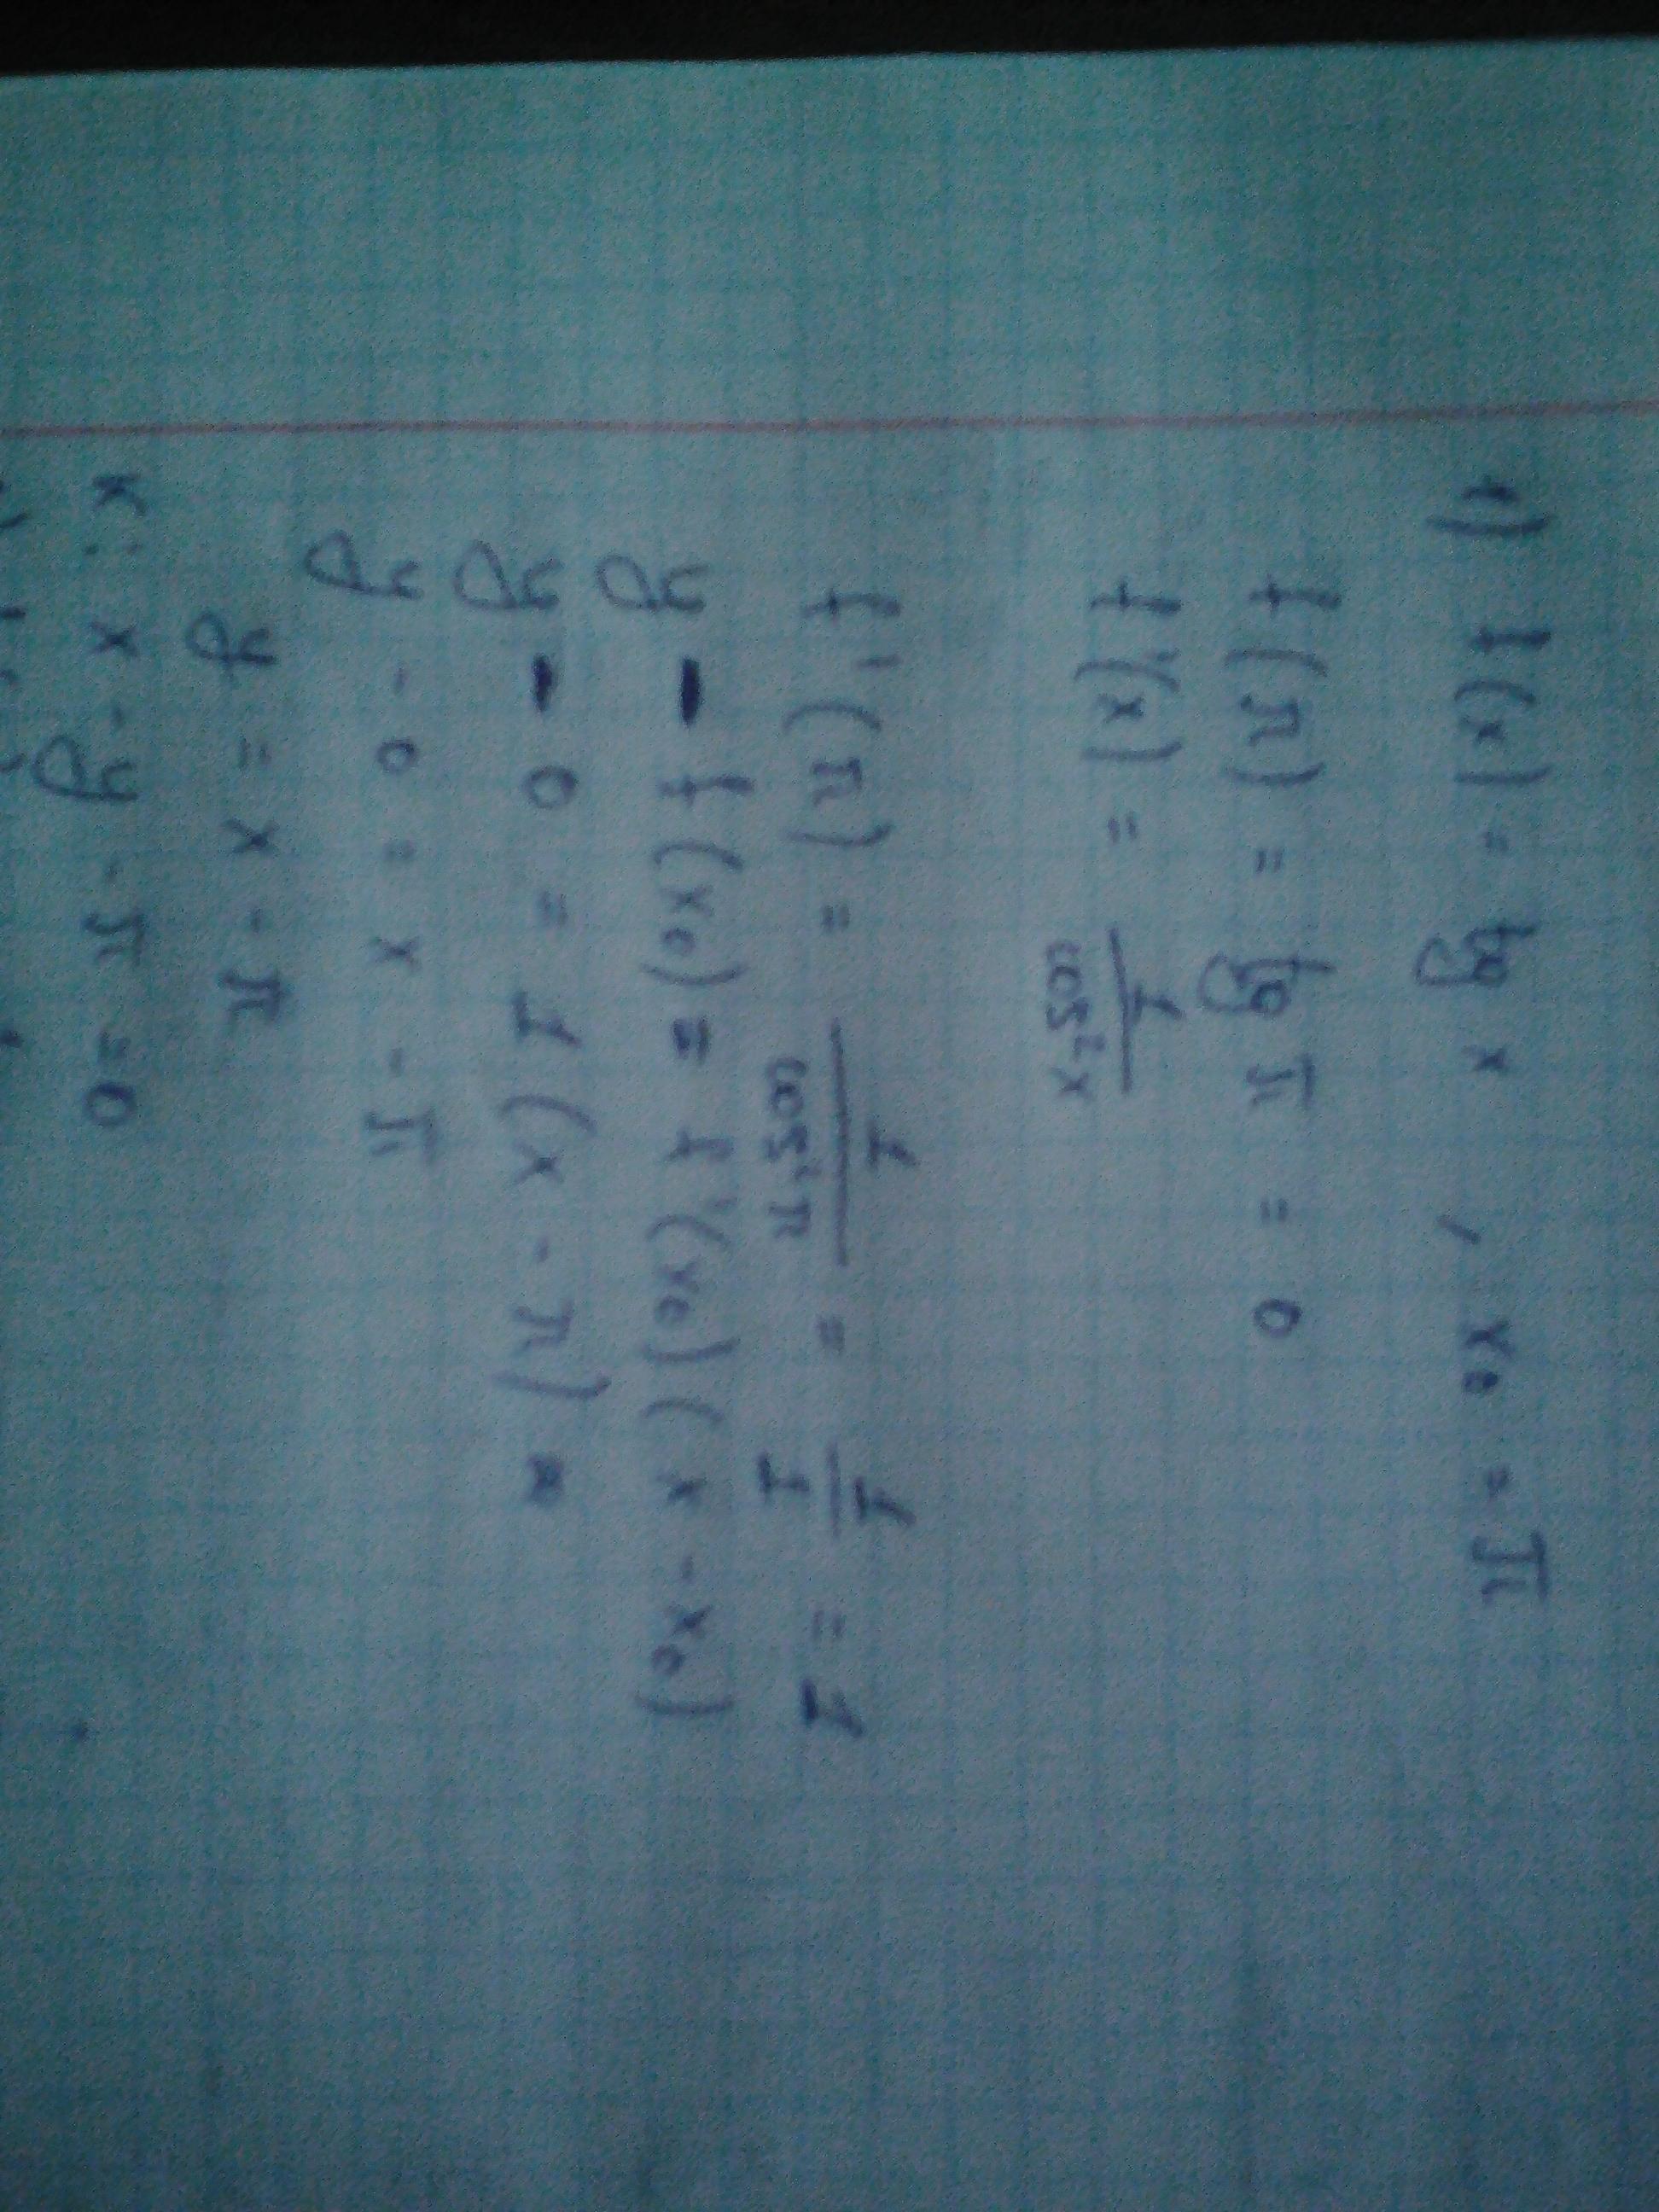 1) f(x) = tg x , x₀ = π
f(π) = tg π = 0
f'(x) = 1/cos²x
f'(π) = 1/cos²π = 1/1 = 1
y - f(x₀) = f'(x₀)(x - x₀)
y - 0 = 1(x - π)
y - 0 = x - π
y = x - π
K: x - y - π = 0